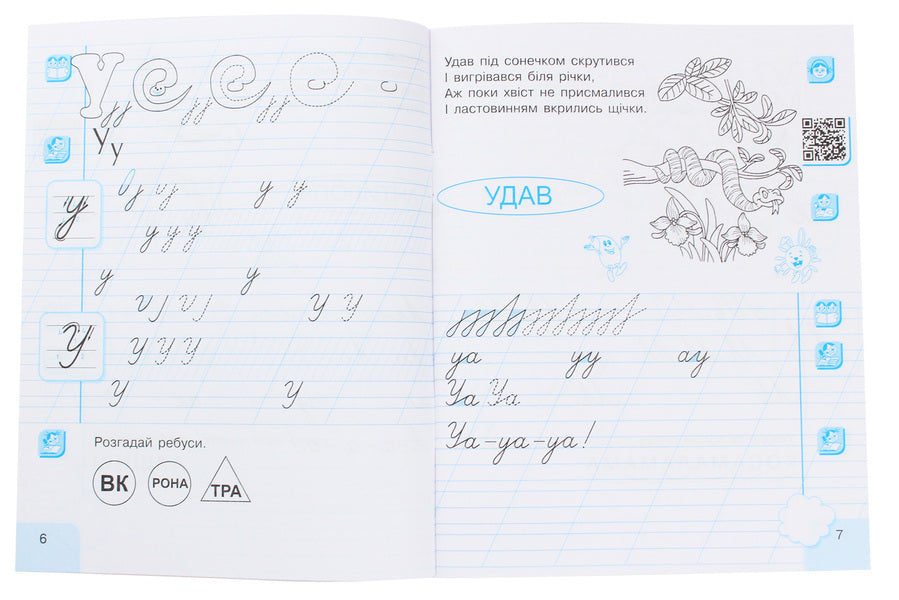 Уу
у у у у
у у у
у у
У У У У
У
У У У
У У
Розгадай ребуси.
ВК РОНА ТРА
6
Удав під сонечком скрутився
І вигрівався біля річки,
Аж поки хвіст не присмалився
І ластовинням вкрились щічки.
УДАВ
уа уу ау
Уа Уа
Уа-уа-уа!
7